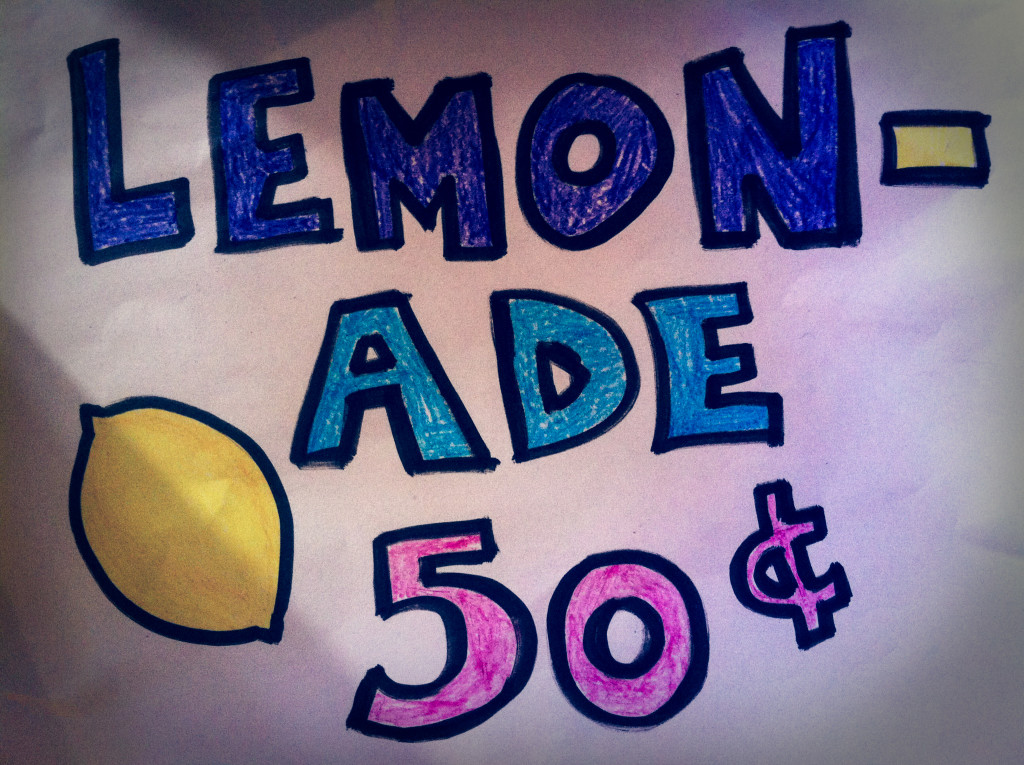 LEMON-
ADE
50¢